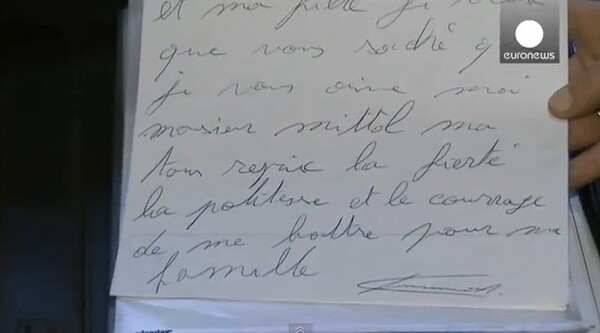 et ma fille je veux
que vous saché q
je vous aime moi
monsieur mittol ma
tous repris la fierté
la politesse et le courrage
de me battre pour ma
famille
euronews